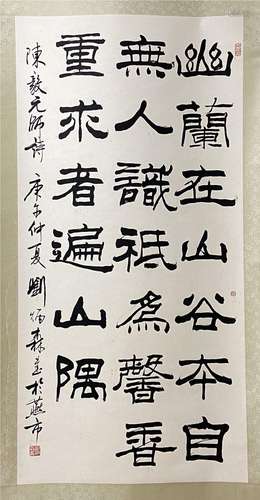 幽蘭在山谷本自
無人識祇爲馨香
重求者遍山隅
陳毅元帥詩 庚午仲夏 劉炳森並於燕市